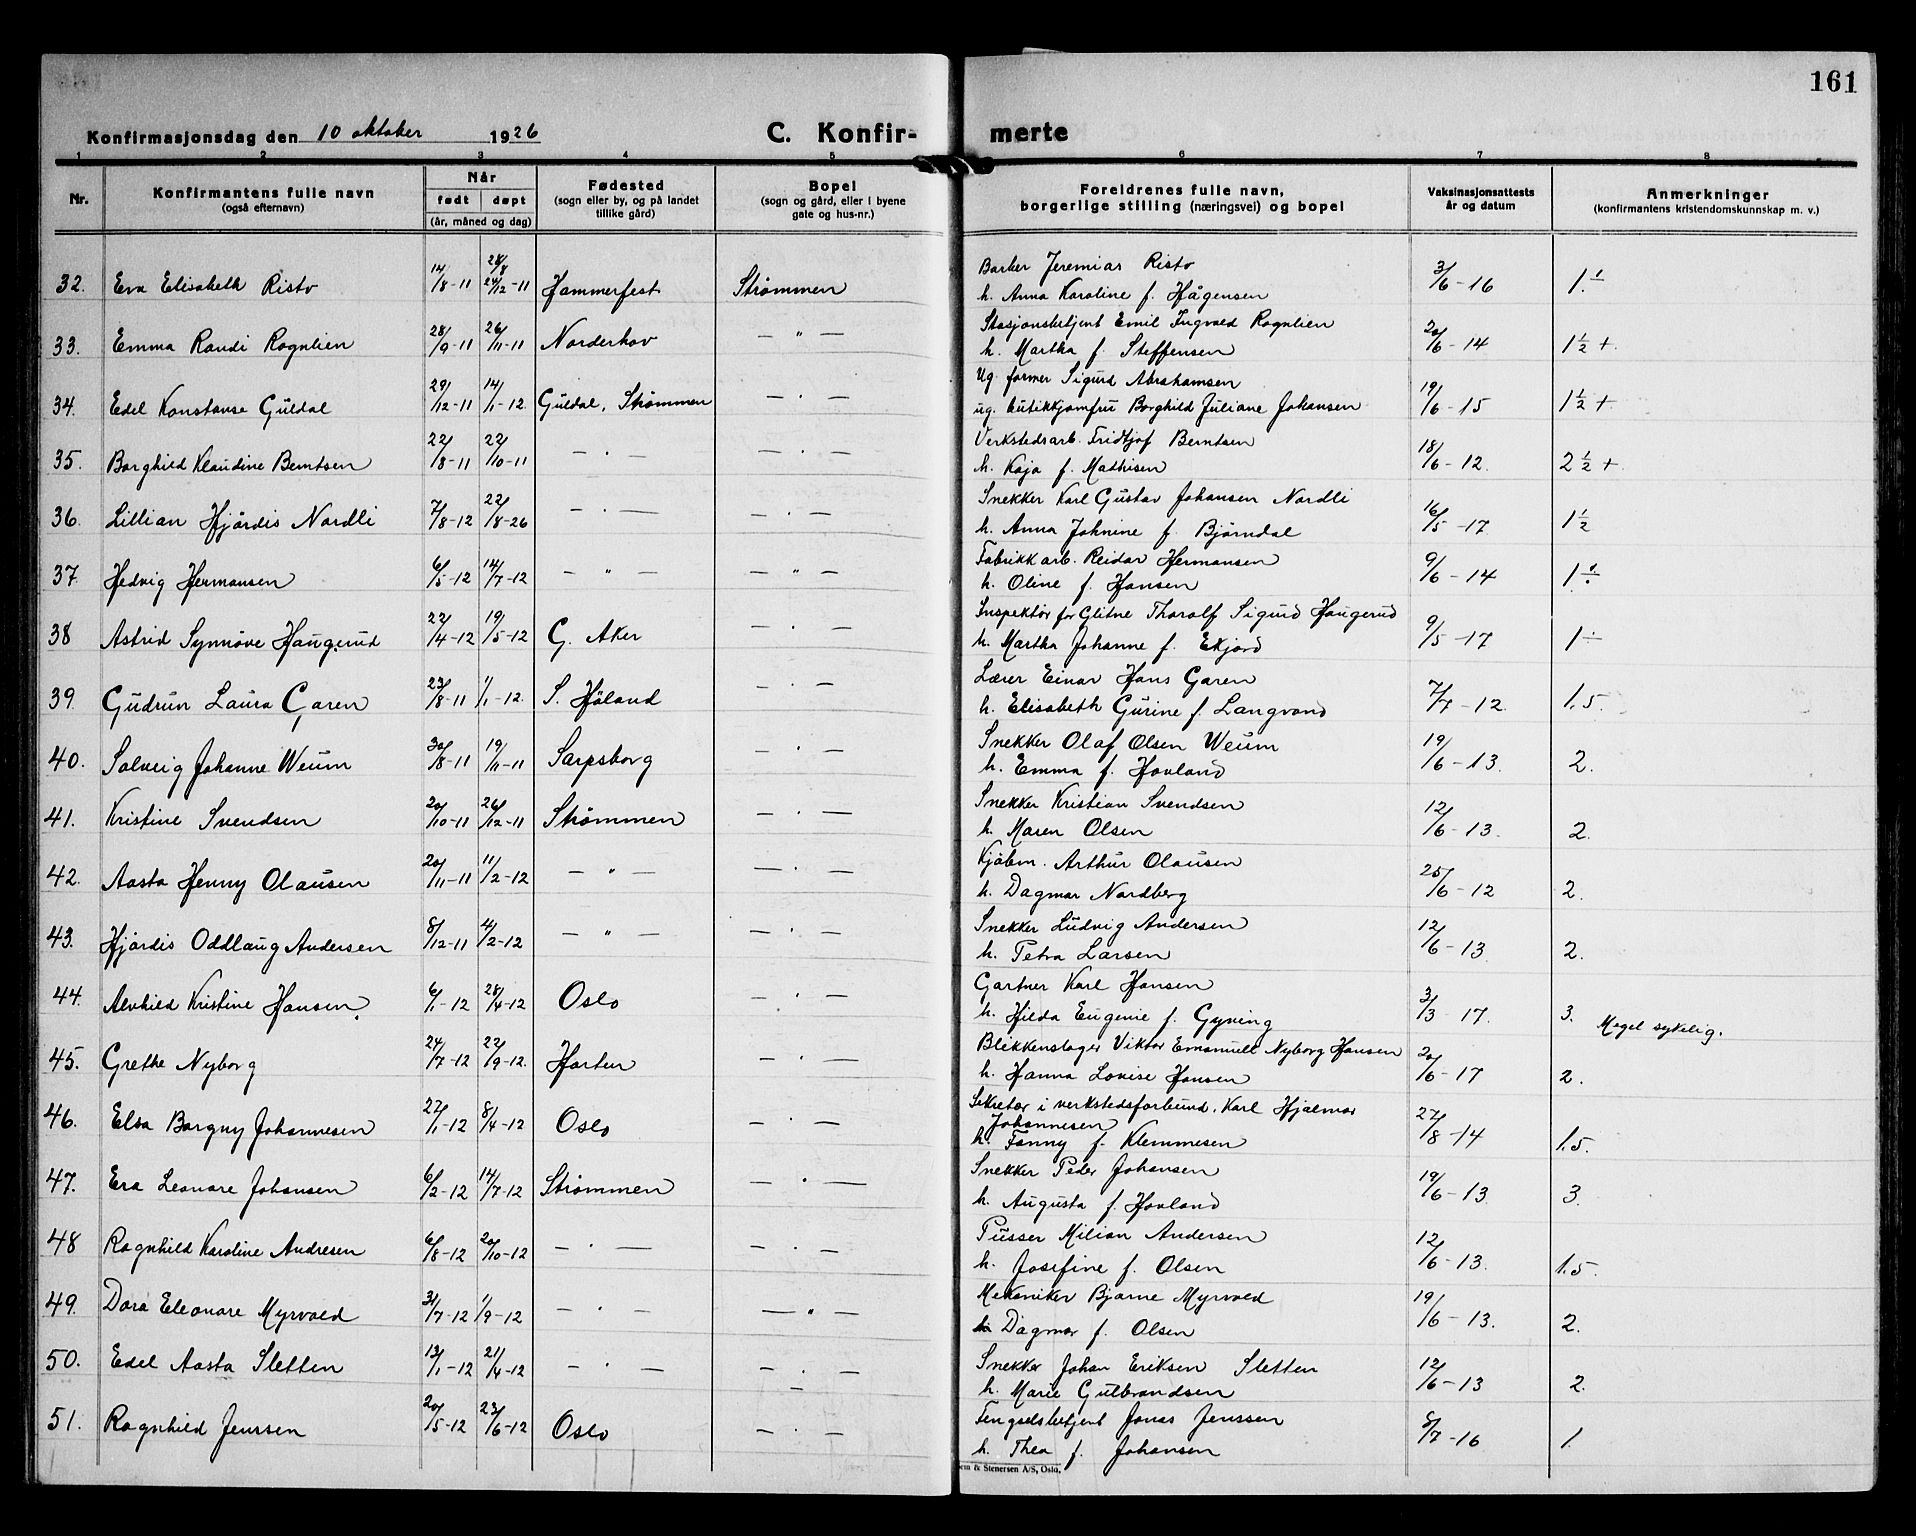 161
Konfirmasjonsdag den 10 oktober 1926 C. Konfir- merte
1 2 3 4 5 6 7 8
Nr. Konfirmantens fulle navn (også efternavn) Når født døpt (år, måned og dag) Fødested (sogn eller by, og på landet tillike gård) Bopel (sogn og gård, eller i byene gate og hus-nr.) Foreldrenes fulle navn, borgerlige stilling (næringsvei) og bopel Vaksinasjonsattests år og datum Anmerkninger (konfirmantens kristendomskunnskap m. v.)
32. Eva Elisabeth Risto 14/8-11 28/8 24/12-11 Hammerfest Strømmen Barber Jeremias Risto 3/6-16 1.÷
h. Anna Karoline f. Hågensen
33. Emma Randi Rognlien 28/9-11 26/11-11 Norderhov — " — Stasjonsbetjent Emil Ingvald Rognlien 20/6-14 1½ +.
h. Martha f. Steffensen
34. Edel Konstanse Guldal 29/12-11 14/1-12 Guldal, Strømmen — . — Ug. former Sigurd Abrahamsen 19/6-15 1½ +
ug. butikkjomfru Borghild Juliane Johansen
35. Borghild Klaudine Berntsen 22/8-11 22/10-11 — . — — . — Verkstedsarb. Fridtjof Berntsen 18/6-12. 2½ +.
h. Kaja f. Mathisen
36. Lillian Hjördis Nordli 7/8-12 22/8-26 — . — — . — Snekker Karl Gustav Johansen Nordli 16/5-17. 1½
h. Anna Johnine f. Björndal
37. Hedvig Hermansen 6/5-12 14/7-12 — " — — " — Fabrikkarb. Reidar Hermansen 9/6-14 1÷
h. Oline f. Hansen
38 Astrid Synnöve Haugerud 22/4-12 19/5-12 G. Aker — . — Inspektör for Glitne Thoralf Sigurd Haugerud 9/5-17 1÷
h. Martha Johanne f. Ekjord
39. Gudrun Laura Garen 23/8-11 1/1-12. S. Höland — . — Lærer Einar Hans Garen 7/7-12. 1.5.
h. Elisabeth Gurine f. Langvand
40. Solveig Johanne Weum 30/8-11 19/11-11 Sarpsborg — . — Snekker Olaf Olsen Weum 19/6-13. 2.
h. Emma f. Hovland
41. Kristine Svendsen 20/10-11 26/12-11 Strömmen — . — Snekker Kristian Svendsen 12/6-13. 2.
h. Maren Olsen
42. Aasta Henny Olausen 20/11-11 11/2-12 — " — — . — Kjöbm. Arthur Olausen 25/6-12 2.
h. Dagmar Nordberg
43. Hjördis Oddlaug Andersen 8/12-11 4/2-12 — " — — . — Snekker Ludvig Andersen 12/6-13 2.
h. Petra Larsen
44. Alvhild Kristine Hansen. 6/1-12 28/4-12 Oslo — . — Gartner Karl Hansen 3/3-17. 3. Meget sykelig.
h. Hilda Eugenie f. Gyving
45. Grethe Nyborg 24/7-12 22/9-12. Horten — . — Blikkenslager Viktor Emanuell Nyborg Hansen 20/6-17 2.
h. Hanna Lovise Hansen
46. Elsa Borgny Johannesen 27/1-12 8/4-12 Oslo — . — Sekretær i verkstedsforbund. Karl Hjalmar 27/8-14 1.5.
Johannesen
h. Fanny f. Klemmesen
47. Eva Leonare Johansen 6/2-12 14/7-12 Strömmen — . — Snekker Peder Johansen 19/6-13 3.
h. Augusta f. Hovland
48 Ragnhild Karoline Andresen 6/8-12 20/10-12 — . — — . — Pusser Milian Andersen 12/6-13. 1.5.
h. Josefine f. Olsen
49. Dora Eleonare Myrvold 31/7-12 1/9-12 — . — — " — Mekaniker Bjarne Myrvold 19/6-13. 2.
h. Dagmar f. Olsen
50. Edel Aasta Sletten 13/1-12 21/4-12 — . — — . — Snekker Johan Eriksen Sletten 12/6-13 2.
h. Marie Gulbrandsen
51. Ragnhild Jenssen 20/5-12 23/6-12 Oslo — . — Fengselsbetjent Jonas Jenssen 8/7-16 1.
h. Thea f. Johansen
em & Stenersen A/S, Oslo.